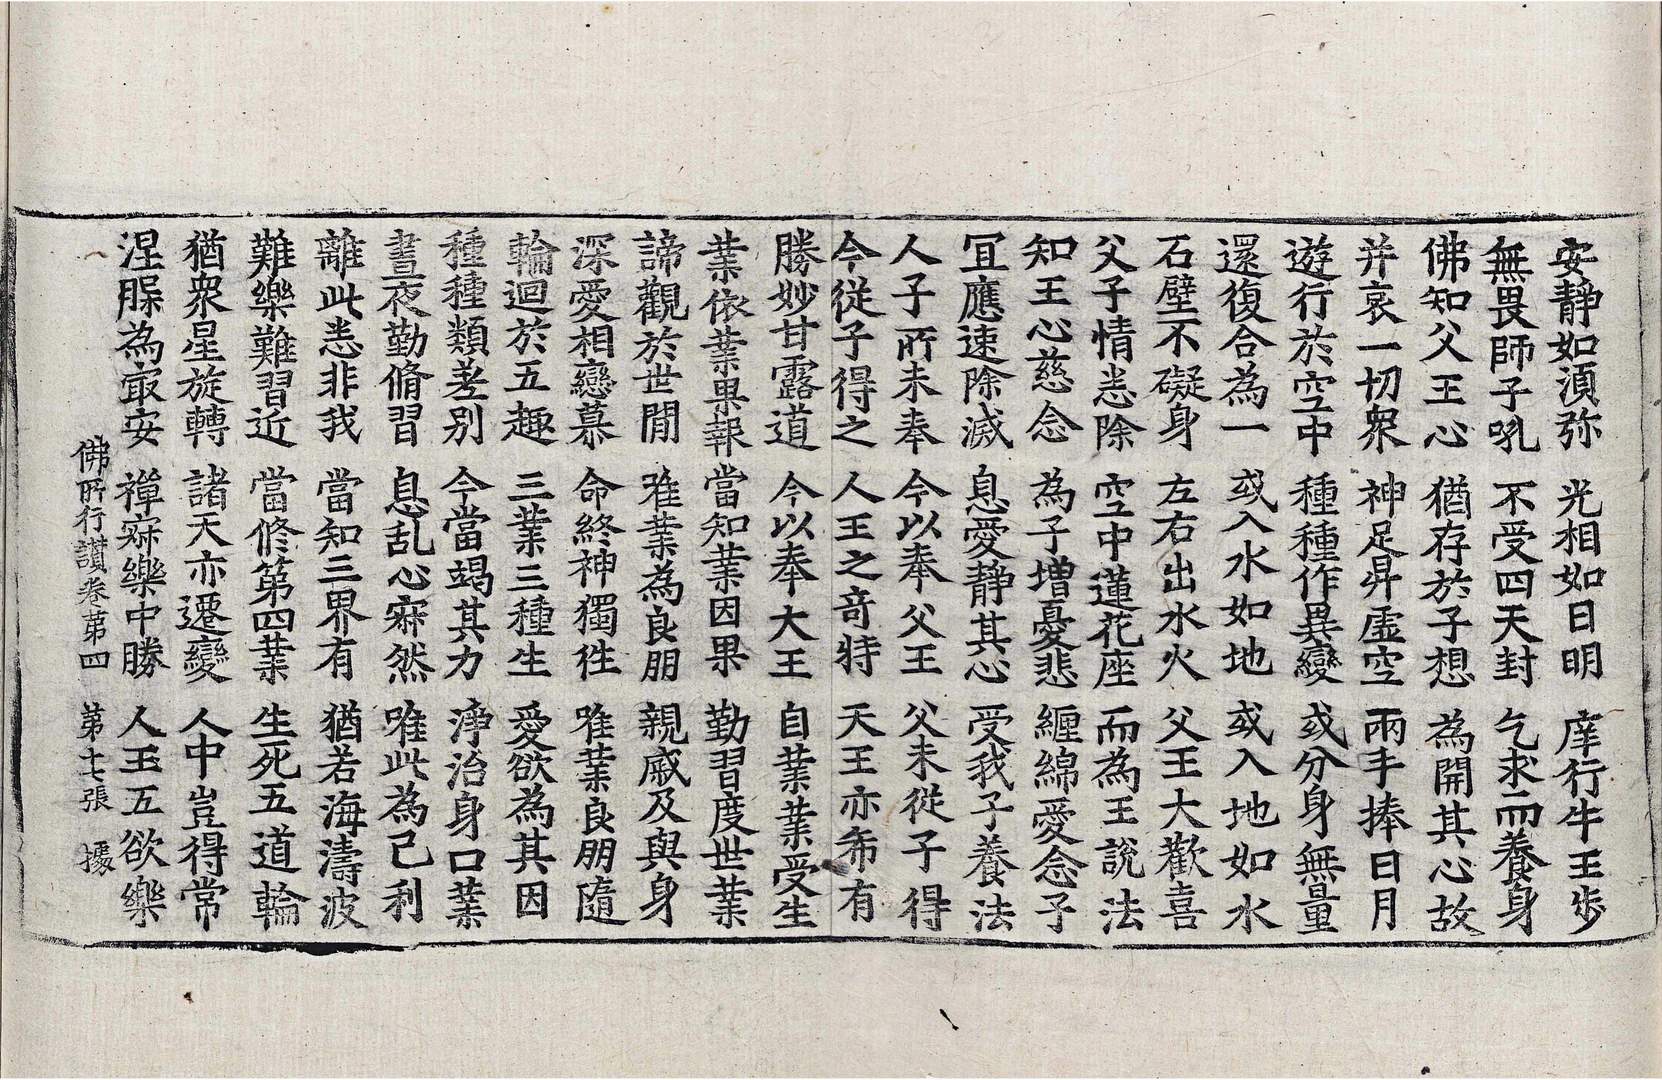 安靜如湏弥 光相如日明 庠行牛王步
無畏師子吼 不受四天封 乞求而養身
佛知父王心 猶存於子想 為開其心故
并哀一切衆 神足昇虛空 兩手捧日月
遊行於空中 種種作異變 或分身無量
還復合為一 或入水如地 或入地如水
石壁不礙身 左右出水火 父王大歡喜
父子情悉除 空中蓮花座 而為王說法
知王心慈念 為子增憂悲 纏綿愛念子
冝應速除滅 息愛靜其心 受我子養法
人子所未奉 今以奉父王 父未從子得
今從子得之 人王之竒特 天王亦希有
勝妙甘露道 今以奉大王 自業業受生
業依業果報 當知業因果 勤習度世業
諦觀於世閒 唯業為良朋 親戚及與身
深愛相戀慕 命終神獨徃 唯業良朋隨
輪迴於五趣 三業三種生 愛欲為其因
種種類差別 今當竭其力 淨治身口業
晝夜勤脩習 息乱心寂然 唯此為己利
離此悉非我 當知三界有 猶若海濤波
難樂難習近 當修第四業 生死五道輪
猶衆星旋轉 諸天亦遷變 人中豈得常
涅槃為寂安 禪寂樂中勝 人王五欲樂
佛所行讃卷第四 第十七張 據